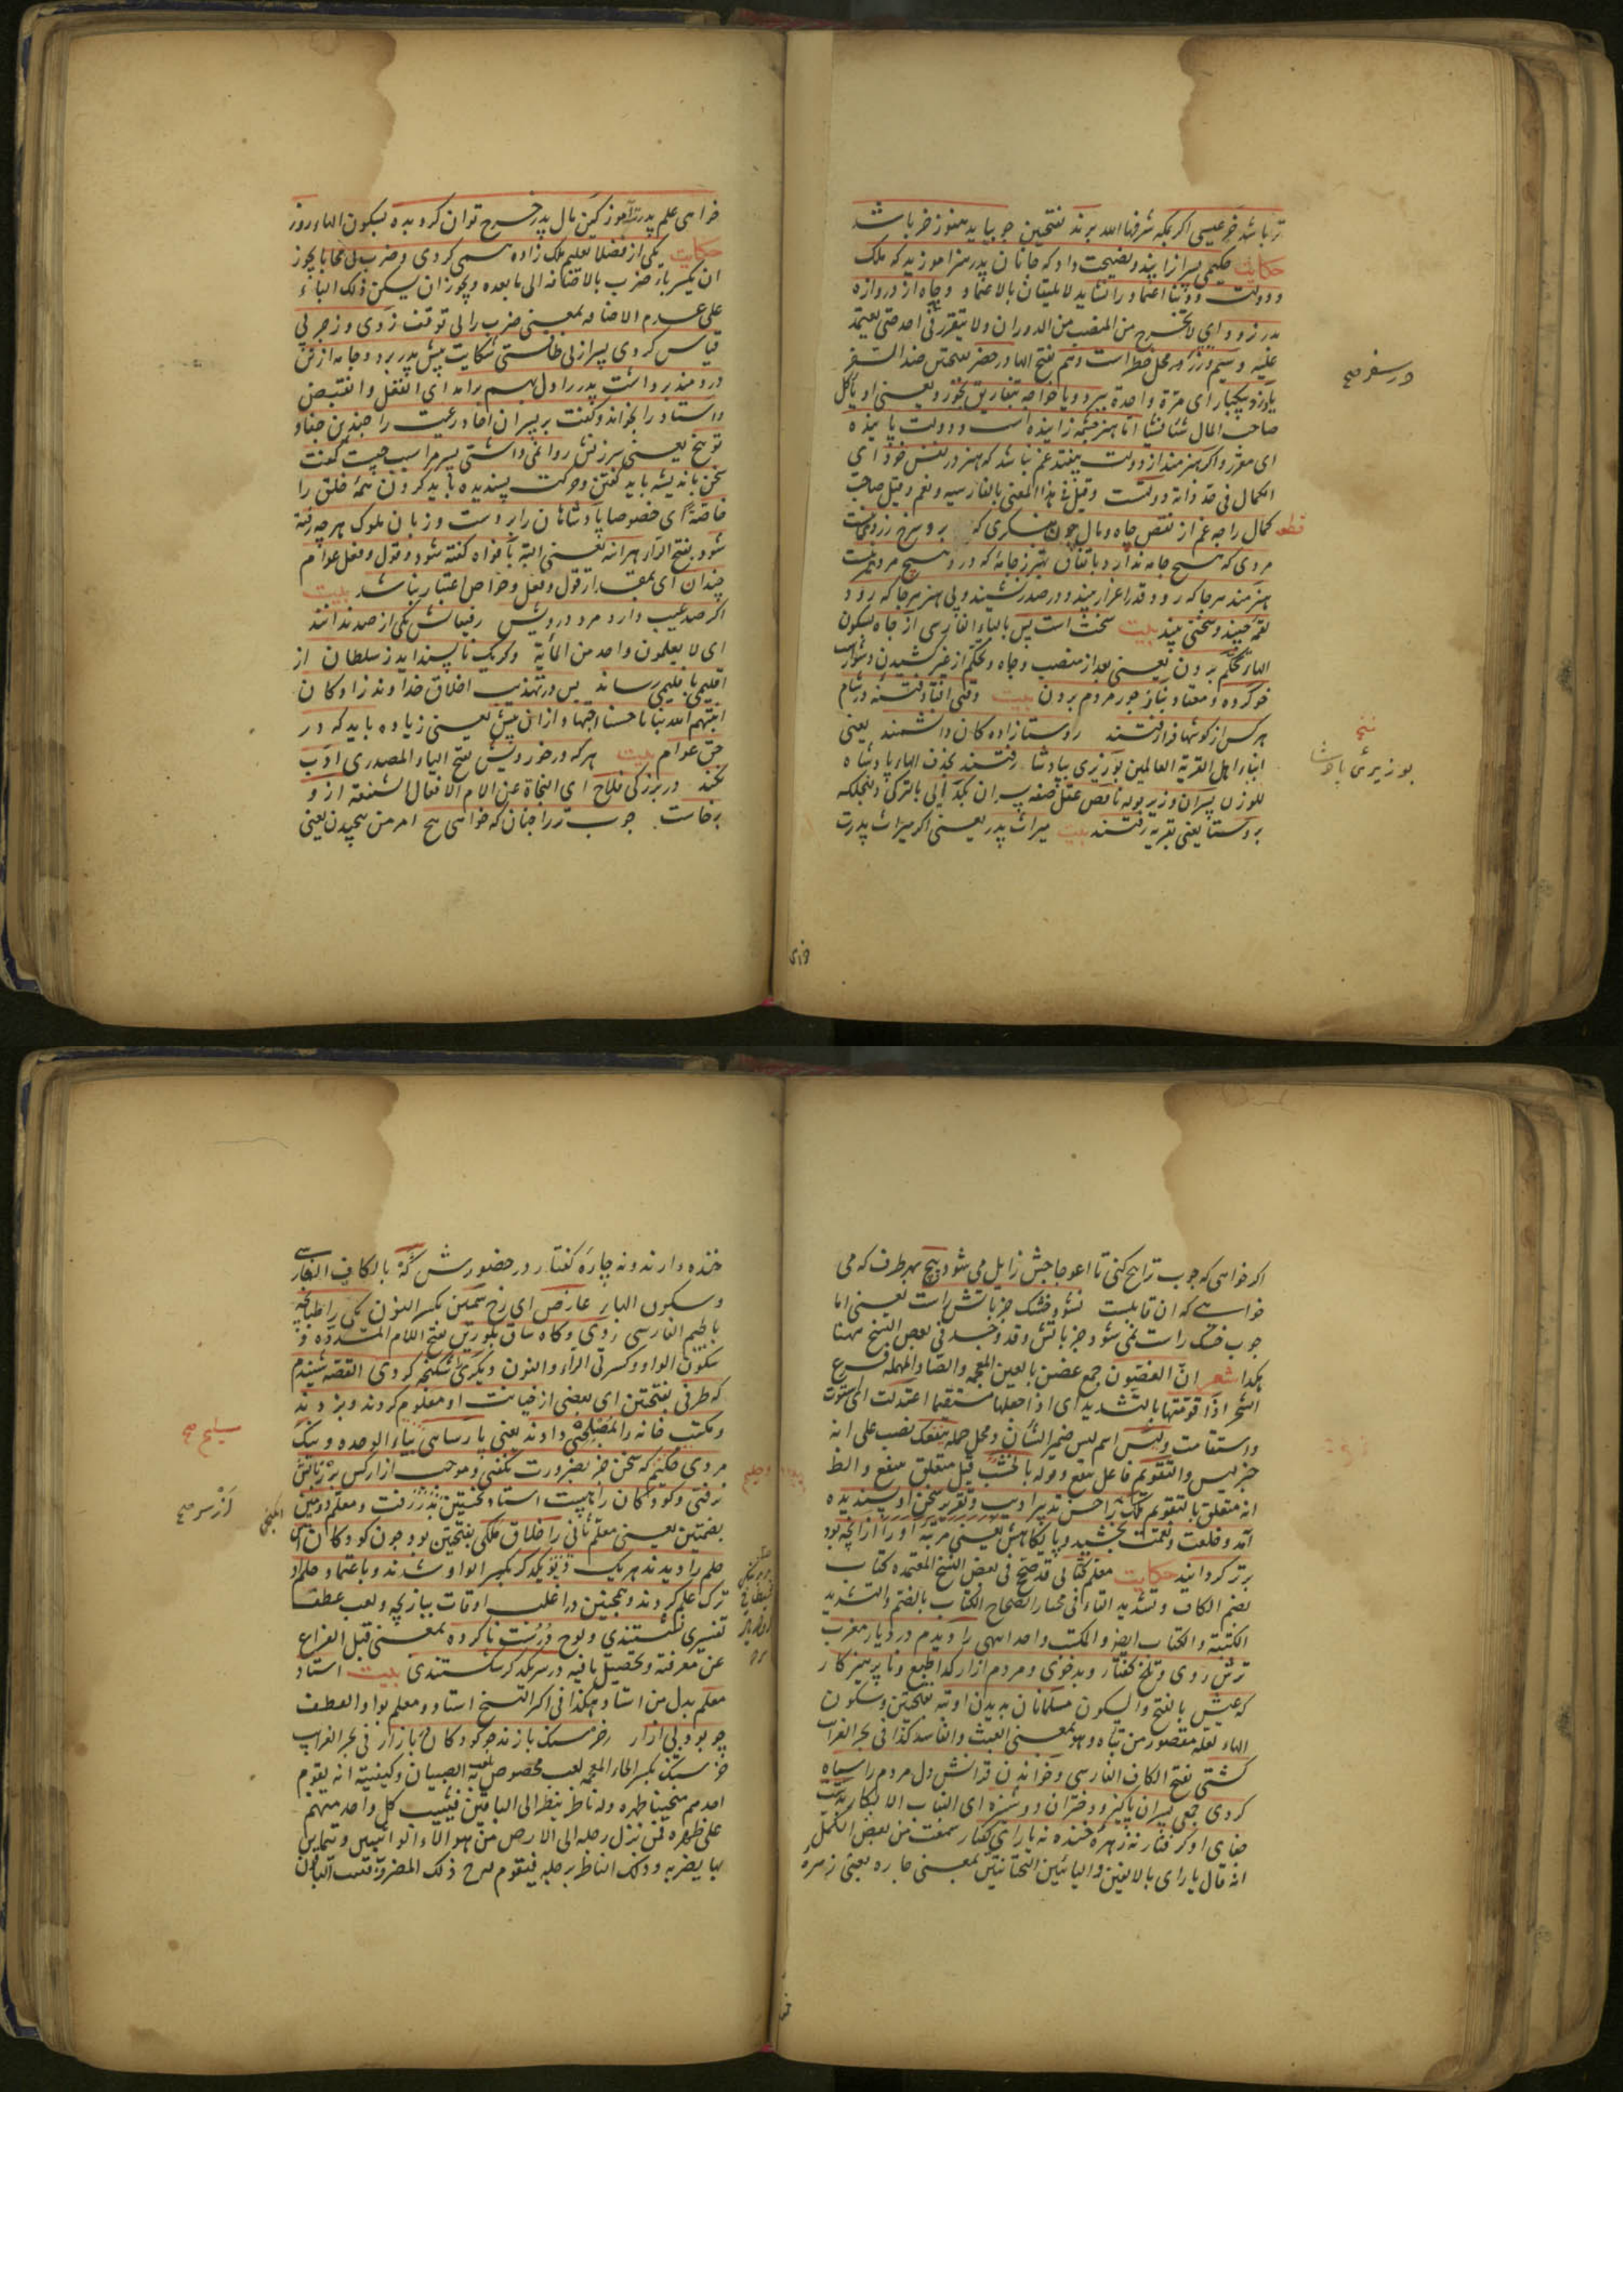 تر باشد خر عیسی اکر بمکه شرفها الله برند بفتحتین جو بیاید هنوز خر باشد
حکایت حکیمی پسرانرا پند و نصیحت داد که جانان پدر هنر اموزید که ملک
و دولت دنیا اعتماد را نشاید لا یلیقان بالاعتماد و جاه از دروازه
بدر نرود ای لا یخرج من المنصب من الدوران ولا یتقرر فی احد حتی یعتمد
علیه و سیم و زر در محل خطر است و هم بفتح الهاء در حضر بفتحتین ضد السفر
یا دزد بیکبار ای مرة واحدة ببرد و یا خواجه بتفاریق بخورد یعنی او یاکل
صاحب المال شیئا فشیئا اما هنر چشمه زاینده است و دولت پاینده
ای مقرر و اکر هنرمند از دولت بیفتد غم نباشد که هنر در نفس خود ای
الکمال فی حد ذاته دولتست وقیل فی هذا المعنی بالفارسیه ونعم وقیل صاحب
قطعه کمال را چه غم از نقص جاه و مال چون بنکری که بر و سرخ زردنیست
مردی که هیچ جامه ندارد باتفاق بهتر ز جامه که در و هیچ مرد نیست
هنرمند هر جا که رود قدر و اعزاز بیند و در صدر نشیند و بی هنر هر جا که رود
لقمه چیند و سختی بیند بیت سختست پس بالباء الفارسی از جاه بسکون
الهاء تحکم بردن یعنی بعد از منصب و جاه و تحکم از غیر کشیدن دشوار است
خو کرده و معتاد بناز جور مردم بردن بیت وقتی افتاد فتنه در شام
هر کس از کوشها فرا رفتند روستا زاده کان دانشمند یعنی
ابناء اهل القریة العالمین بوزیری بپادشا رفتند بحذف الهاء پادشاه
للوزن پسران وزیر بوده ناقص عقل صفه پسران بکدایی بالترکی دلنجلکه
بروستا یعنی بقریه رفتند بیت میراث پدر یعنی اکر میراث پدرت
در سفر صح
بوزیرئ پادشا
خواهی علم پدر آموز کین مال پدر خرج توان کرد بده بسکون الهاء روز
حکایت یکی از فضلا تعلیم ملک زاده همی کردی و ضرب بی محابا یجوز
ان یکسر باء ضرب بالاضافه الی ما بعده و یجوز ان یسکن ذلک الباء
علی عدم الاضافه بمعنی ضرب را بی توقف زدی و زجر بی
قیاس کردی پسر از بی طاقتی شکایت پیش پدر برد و جامه از تن
دردمند برداشت پدر را دل بهم برامد ای انفعل وانقبض
و استاد را بخواند و کفت بر پسران احاد رعیت را چندین جفا و
توبیخ یعنی سرزنش روا نمی داشتی پسر مرا سبب چیست کفت
سخن باندیشه باید کفتن و حرکت پسندیده باید کردن همه خلق را
خاصة ای خصوصا پادشاهان را بر دست و زبان ملوک هر چه رفته
شود بفتح الراء هرانه یعنی البته بافواه کفته شود و قول و فعل عوام
چندان ای بمقدار قول و فعل خواص اعتبار نباشد بیت
اکر صد عیب دارد مرد درویش رفیقانش یکی از صد ندانند
ای لا یعلمون واحد من المایة و کر یک ناپسند اید ز سلطان از
اقلیمی باقلیمی رساند پس در تهذیب اخلاق خداوند زادکان
انبتهم الله نباتا حسنا اجتهاد ازان بیش یعنی زیاده باید که در
حق عوام بیت هر که در خردیش بفتح الیاء المصدری ادب
نکند در بزرکی فلاح ای النجاة عن الآلام الافعال الشنعه ازو
برخاست چوب تر را چنان که خواهی پیچ امر من پیچیدن یعنی
اکر خواهی که چوب تر را پیچ کنی تا اعوجاجش زایل می شود پیچ بهر طرف که می
خواهی که ان قابلست نشود خشک جز باتش راست یعنی اما
چوب خشک راست نمی شود جز باتش وقد وجد فی بعض النسخ مهنا
هکذا شعر ان الغصون جمع غصن بالغین المعجمه والصاد المهمله فرع
الشجر اذا قومتها بالتشدید ای اذا جعلها مستقیما اعتدلت ای استوت
واستقامت ولیس اسم لیس ضمیر الشان ومحل جمله ینفعک نصب علی انه
خبر لیس والتقویم فاعل ینفع وقوله بالخشب قیل متعلق ینفع والظ
انه متعلق بالتقویم ملک را حسن تدبیر ادیب و تقریر سخن او پسندیده
آمد و خلعت و نعمت بخشید و پایکاهش یعنی مرتبه او را از انچه بود
برتر کردانید حکایت معلم کتابی قد صح فی بعض النسخ المعتمده کتاب
بضم الکاف وتشدید التاء فی مختار الصحاح الکتاب بالضم والتشدید
الکتبة والکتاب ایضا والمکتب واحد انتهی را دیدم در دیار مغرب
ترش روی و تلخ کفتار و بدخوی و مردم ازار کدا طبع و ناپرهیزکار
که عیش بالفتح والسکون مسلمانان بدیدن او تبه بفتحتین وسکون
الهاء لعله مقصور من تباه وهو بمعنی العبث والفاسد کذا فی بحر الغرایب
کشتی بفتح الکاف الفارسی و خواندن قرانش دل مردم را سیاه
کردی جمعی پسران پاکیزه و دختران دوشیزه ای الشاب الابکار بدست
جفای او کرفتار نه زهره خنده نه یارای کفتار سمعت من بعض الکمل
انه قال یارای بالالفین والیائین التحتانیتین بمعنی چاره یعنی زهره
خنده دارند و نه چاره کفتار در حضورش که بالکاف الفارسی
وسکون الهاء عارض ای رخ سمین بکسر النون یکی را طبانچه
بالجیم الفارسی زدی و کاه ساق بلورین بفتح اللام المشدده و
سکون الواو و کسرتی الراء والنون دیکری شکنجه کردی القصه شنیدم
که طرفی بفتحتین ای بعضی از خیانت او معلوم کردند و بزدند
و مکتب خانه را بمصلحی دادند یعنی پارسایی بیاء الوحده و نیک
مردی حکیم که سخن جز بضرورت نکفتی و موجب ازار کس بر زبانش
نرفتی و کودکان را هیبت استاد نخستین بدر رفت و معلم دومین
بضمتین یعنی معلم ثانی را اخلاق ملکی بفتحتین بود چون کودکان این
حلم را دیدند هر یک دیو یکدیکر بکسر الواو شدند و باعتماد حلم او
ترک علم کردند و همچنین در اغلب اوقات ببازیچه ولعب عطف
تفسیری نشستندی و لوح درست ناکرده بمعنی قبل الفراغ
عن معرفته وتحصیل مافیه در سر یکدیکر شکستندی بیت استاد
معلم بدل من استاد هکذا فی اکثر النسخ استاد و معلم بواو العطف
چو بود بی ازار خرسنک بازند جو کودکان بازار فی بحر الغرایب
خرسنک بکسر الخاء المعجمه لعب مخصوص یلعبه الصبیان وکیفیته انه یقوم
احد منهم منحنیا ظهره وله ناظر ینظر الی الباقین فیثیب کل واحد منهم
علی ظهره فمن نزل رجله الی الارض من هولاء الواثبین
بها یضربه وذلک الناظر برجله فیقوم مع ذلک المضروب